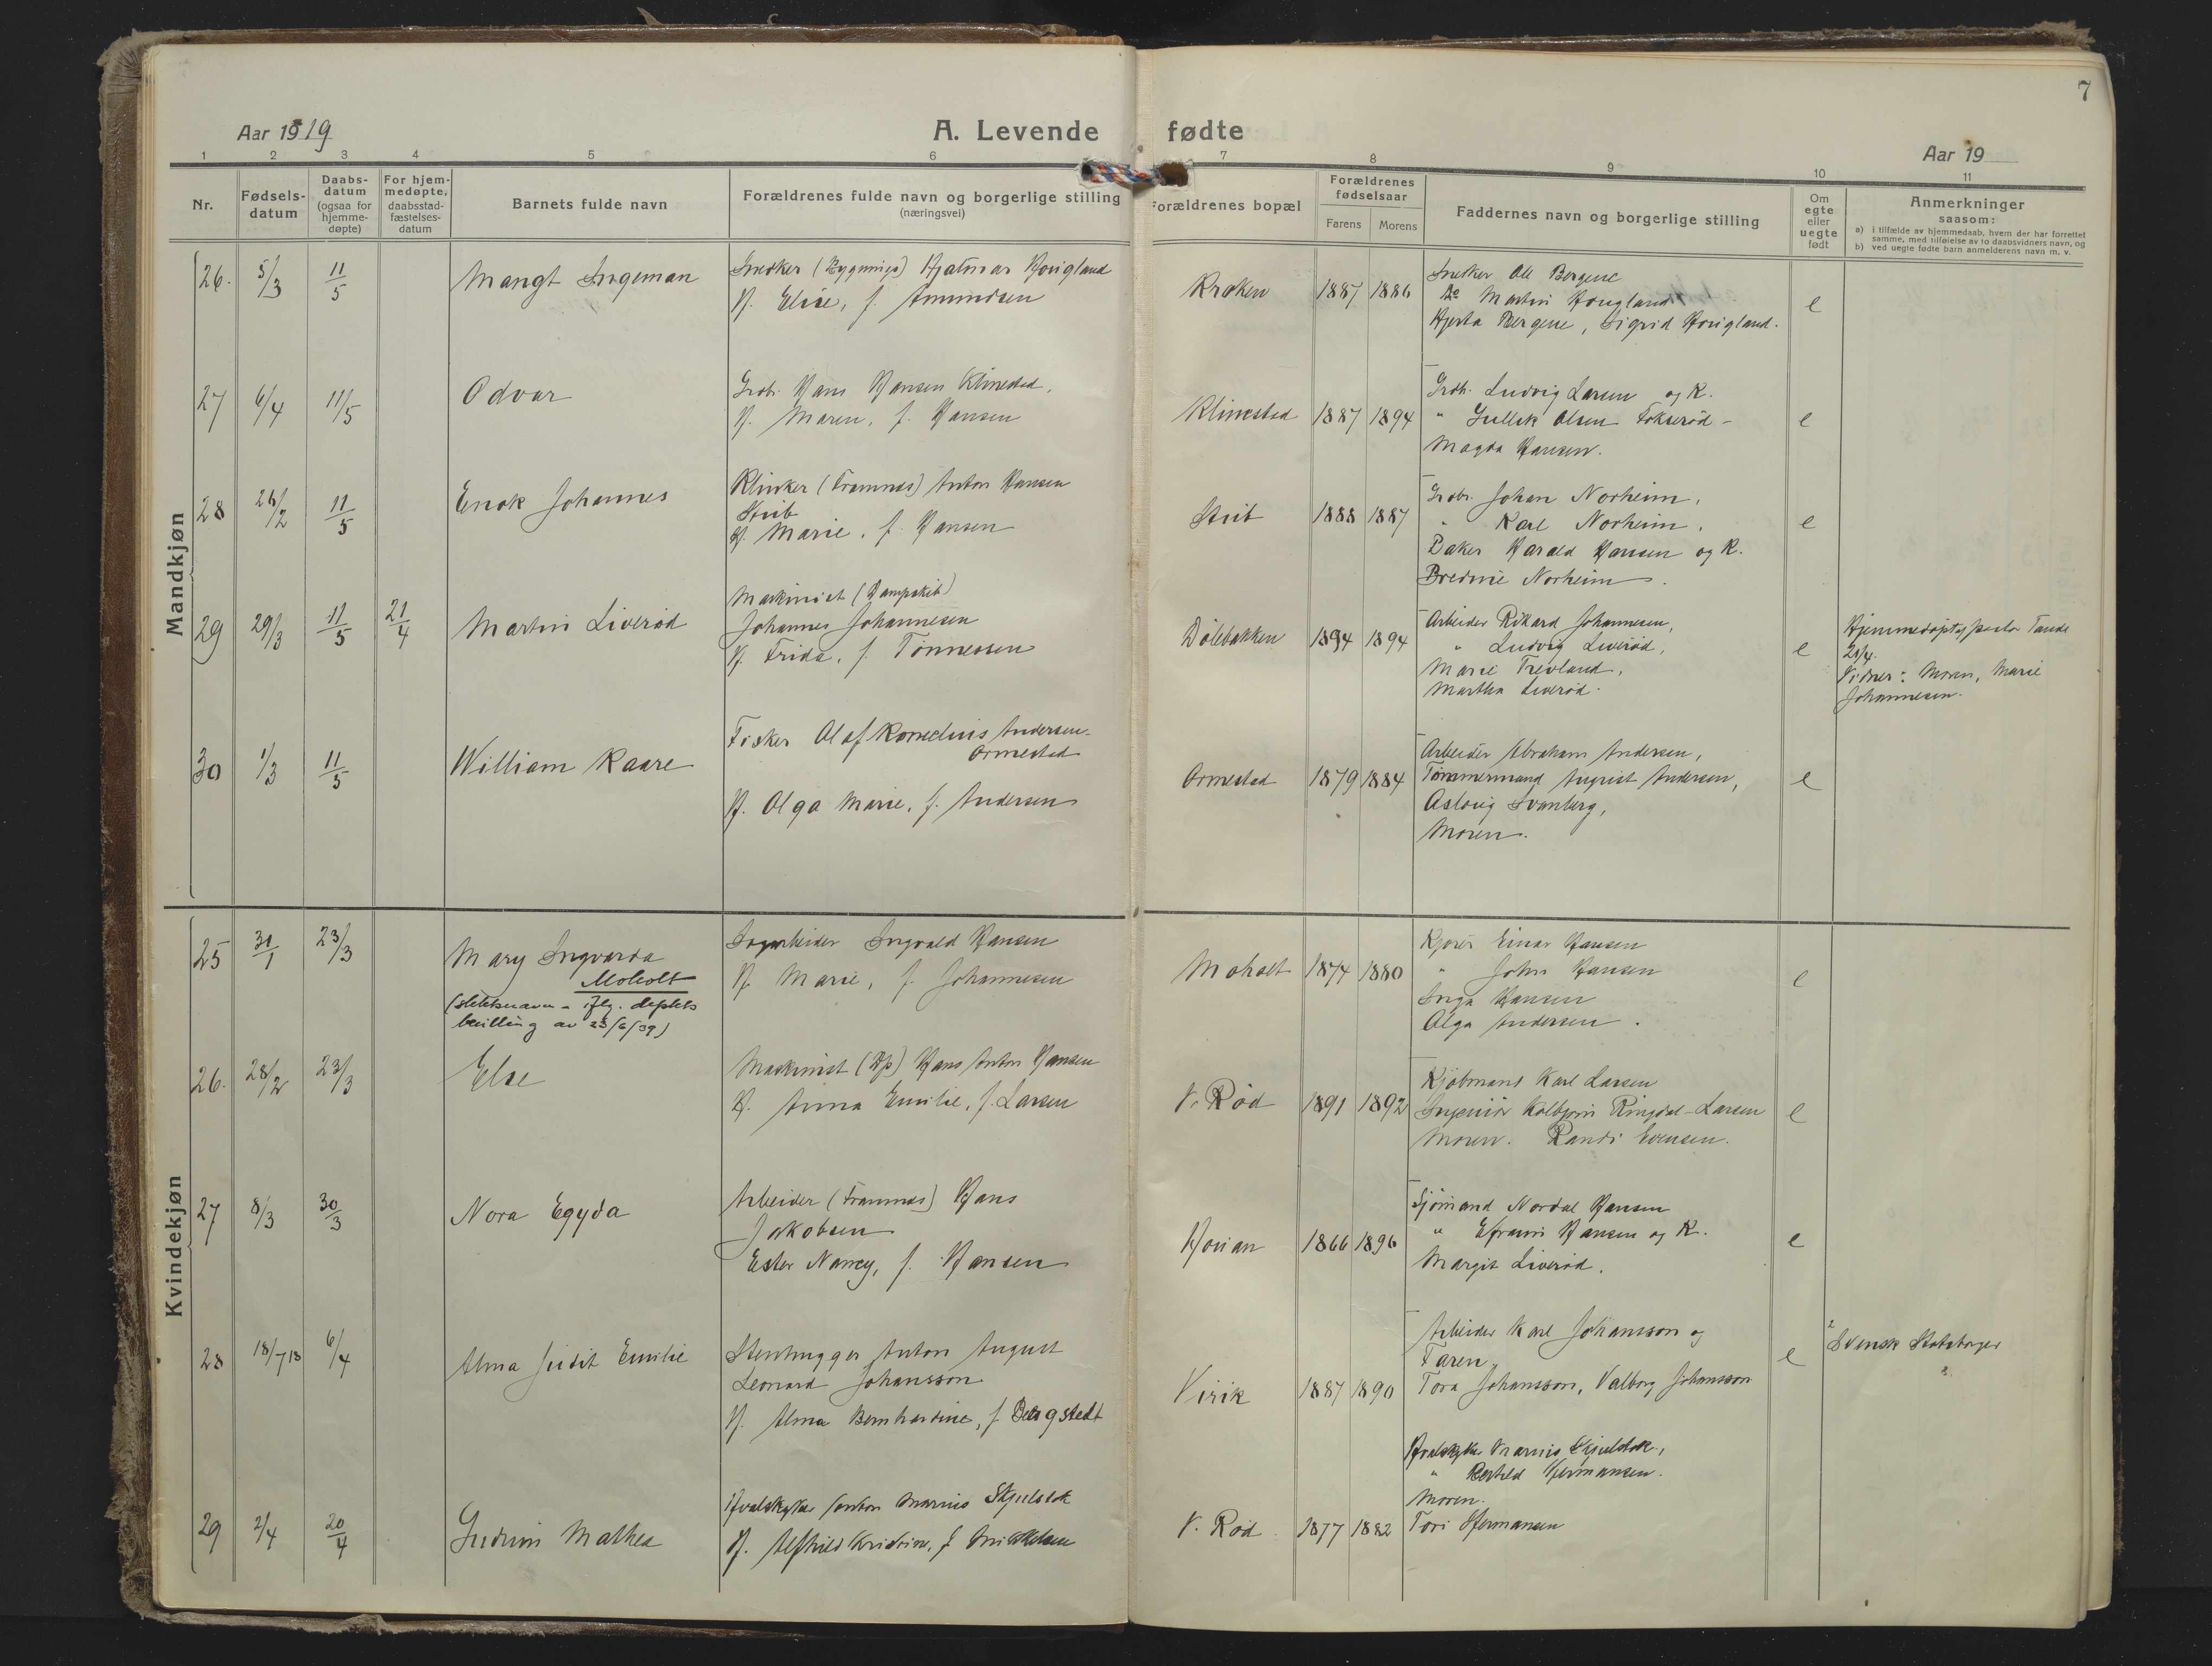 7
Aar 1919
A. Levende fødte
Aar 19
1 2 3 4 5 6 7 8 9 10 11
Nr.
Fødsels-
datum
Daabs-
datum
(ogsaa for
hjemme-
døpte)
For hjem-
medøpte,
daabsstad-
fæstelses-
datum
Barnets fulde navn
Forældrenes fulde navn og borgerlige stilling
(næringsvei)
Forældrenes bopæl
Forældrenes
fødselsaar
Farens Morens
Faddernes navn og borgerlige stilling
Om
egte
eller
uegte
født
Anmerkninger
saasom:
a) i tilfælde av hjemmedaab, hvem der har forrettet
samme, med tilføielse av to daabsvidners navn, og
b) ved uegte fødte barn anmelderens navn m. v.
Mandkjøn
26. 5/3 11/5
Mangt Ingeman
Snedker (Bygnings) Hjalmar Hougland
H. Elise, f. Amundsen
Kraken 1887 1886
Snedker Ole Bergene
Do Martin Hougland
Bergene, Sigrid Hougland.
e
27 6/4 11/5
Odvar
Grdb. Hans Hansen Klinestad.
H. Maren, f. Hansen
Klinestad 1887 1894
Grdb. Ludvig Larsen og K.
" Gullik Olsen Fokserød -
Magda Hansen.
e
28 26/2 11/5
Enok Johannes
Klinker (Framnæs) Anton Hansen
Stub
H. Marie, f. Hansen
Stub 1888 1887
Grdbr. Johan Norheim,
" Karl Norheim.
Baker Harald Hansen og K.
Norheim.
e
29 29/3 11/5 21/4
Martin Liverød
Maskinist (Dampskib)
Johannes Johannesen
H. Frida, f. Tønnessen
Dølebakken 1894 1894
Arbeider Rikard Johannesen,
" Ludvig Liverød,
Marie Trevland,
Martha Liverød.
e
Hjemmedøpt af pastor Tande
21/4.
Vidner: Moren, Marie
Johannesen.
30 1/3 11/5
William Kaare
Fisker Olaf Kornelius Andersen
Ormestad
H. Olga Marie, f. Andersen
Ormestad 1879 1884
Arbeider Abraham Andersen,
Tømmermand August Andersen,
Aslaug Svanberg,
Moren.
e
Kvindekjøn
25 30/1 23/3
Mary Ingvarda
Moholt
(slektsnavn - iflg. deptets
bevilling av 23/6/39)
Sagarbeider Ingvald Hansen
H. Marie, f. Johannesen
Moholt 1874 1880
Kjører Einar Hansen
" John Hansen
Inga Hansen
Olga Andersen.
e
26. 28/2 23/3
Else
Maskinist (Dp) Hans Anton Hansen
H. Anna Emilie, f. Larsen
V. Rød 1891 1892
Kjøbmand Karl Larsen
Ingeniør Kolbjørn Ringdal-Larsen
Moren. Randi Evensen.
e
27 8/3 30/3
Nora Egyda
Arbeider (Framnæs) Hans
Jakobsen
Ester Nancy, f. Hansen
Hovian 1866 1896
Sjømand Nordal Hansen
" Efraim Hansen og K.
Margit Liverød.
e
28 18/7 18 6/4
Alma Judit Emilie
Stenhugger Anton August
Leonard Johansson
H. Alma Bernhardine, f. Bergstedt
Virik 1887 1890
Arbeider Karl Johansson og
Faren,
Tora Johansson, Valborg Johansson
e
Svensk Statsborger
29 2/4 20/4
Gudrun Mathea
Hvalskytter Anton Marius Skjelstok
H. Alfhild Kristine, f. Mikkelsen
V. Rød 1877 1882
Hvalskytter Marius Skjelstok,
" Hermansen.
Moren.
Tori Hermansen